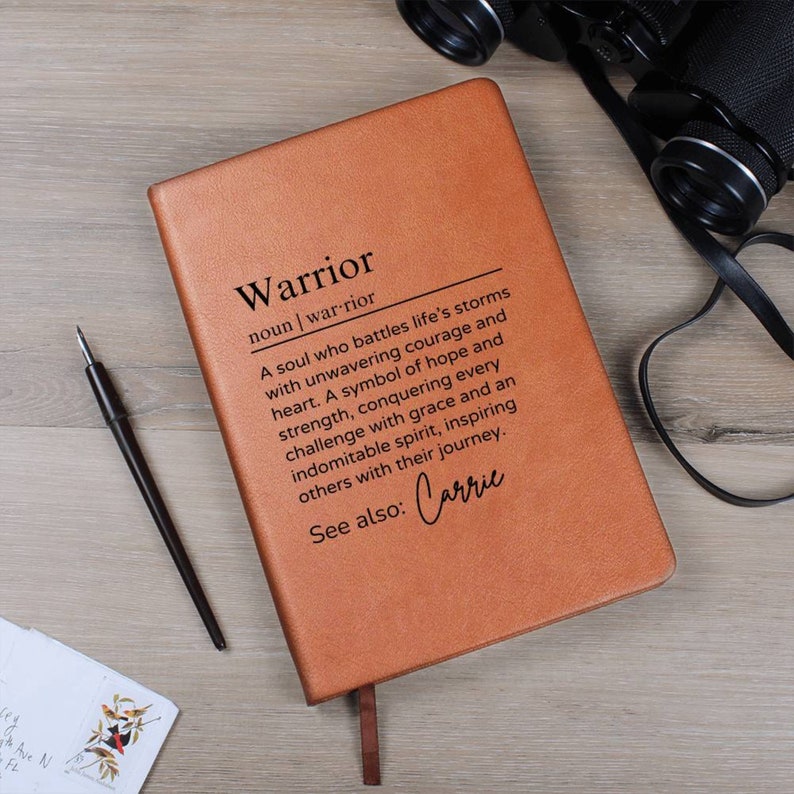 Warrior
noun | war·rior
A soul who battles life's storms
with unwavering courage and
heart. A symbol of hope and
strength, conquering every
challenge with grace and an
indomitable spirit, inspiring
others with their journey.
See also: Carrie
Ave N
FL